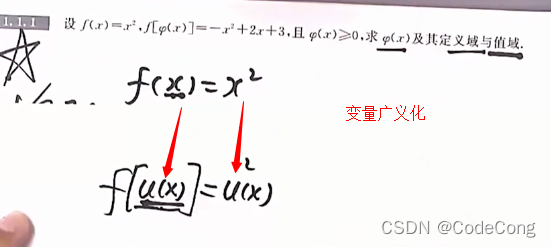 1.1.1 设 f(x)=x²,f[φ(x)]=-x²+2x+3,且 φ(x)≥0,求 φ(x)及其定义域与值域.
f(x)=x²
变量广义化
f[u(x)]=u²(x)
CSDN @CodeCong